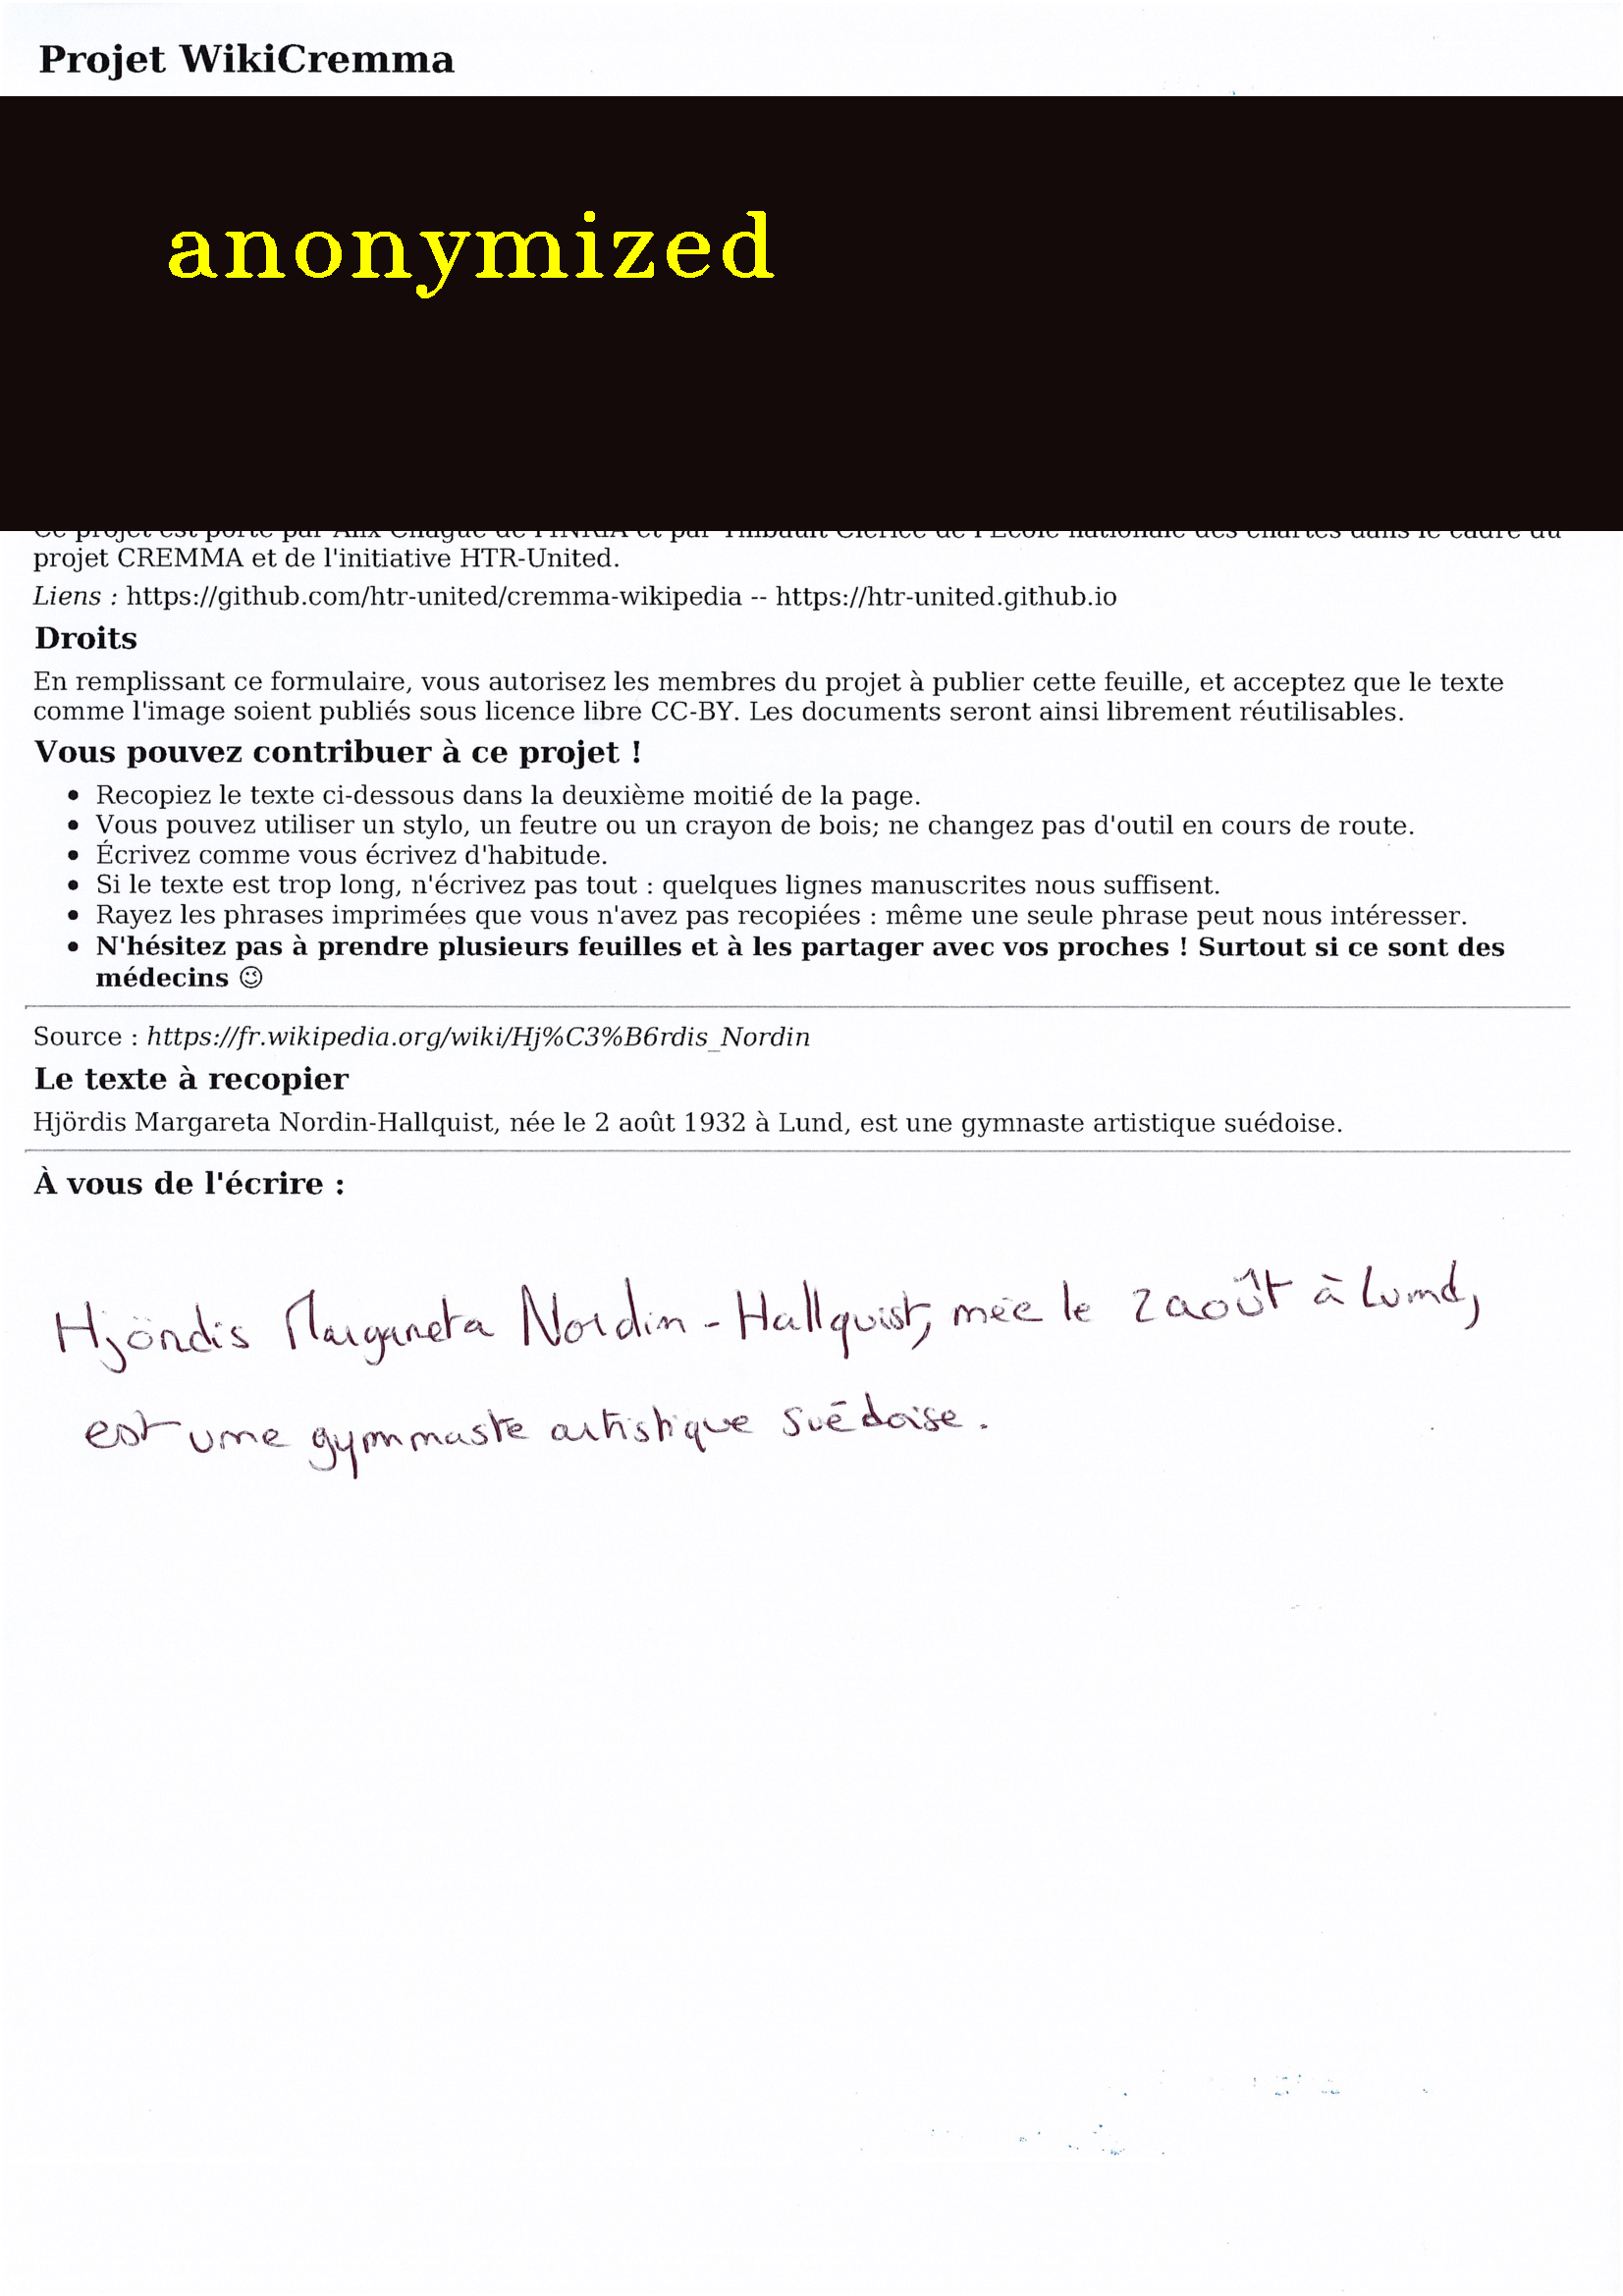 Projet WikiCremma
anonymized
Ce projet est porté par Alix Chagué de l'INRIA et par Thibault Clérice de l'École nationale des chartes dans le cadre du
projet CREMMA et de l'initiative HTR-United.
Liens : https://github.com/htr-united/cremma-wikipedia -- https://htr-united.github.io
Droits
En remplissant ce formulaire, vous autorisez les membres du projet à publier cette feuille, et acceptez que le texte
comme l'image soient publiés sous licence libre CC-BY. Les documents seront ainsi librement réutilisables.
Vous pouvez contribuer à ce projet !
• Recopiez le texte ci-dessous dans la deuxième moitié de la page.
• Vous pouvez utiliser un stylo, un feutre ou un crayon de bois; ne changez pas d'outil en cours de route.
• Écrivez comme vous écrivez d'habitude.
• Si le texte est trop long, n'écrivez pas tout : quelques lignes manuscrites nous suffisent.
• Rayez les phrases imprimées que vous n'avez pas recopiées : même une seule phrase peut nous intéresser.
• N'hésitez pas à prendre plusieurs feuilles et à les partager avec vos proches ! Surtout si ce sont des
médecins 😉
Source : https://fr.wikipedia.org/wiki/Hj%C3%B6rdis_Nordin
Le texte à recopier
Hjördis Margareta Nordin-Hallquist, née le 2 août 1932 à Lund, est une gymnaste artistique suédoise.
À vous de l'écrire :
Hjördis Margareta Nordin-Hallquist, née le 2 août à Lund,
est une gymnaste artistique suédoise.